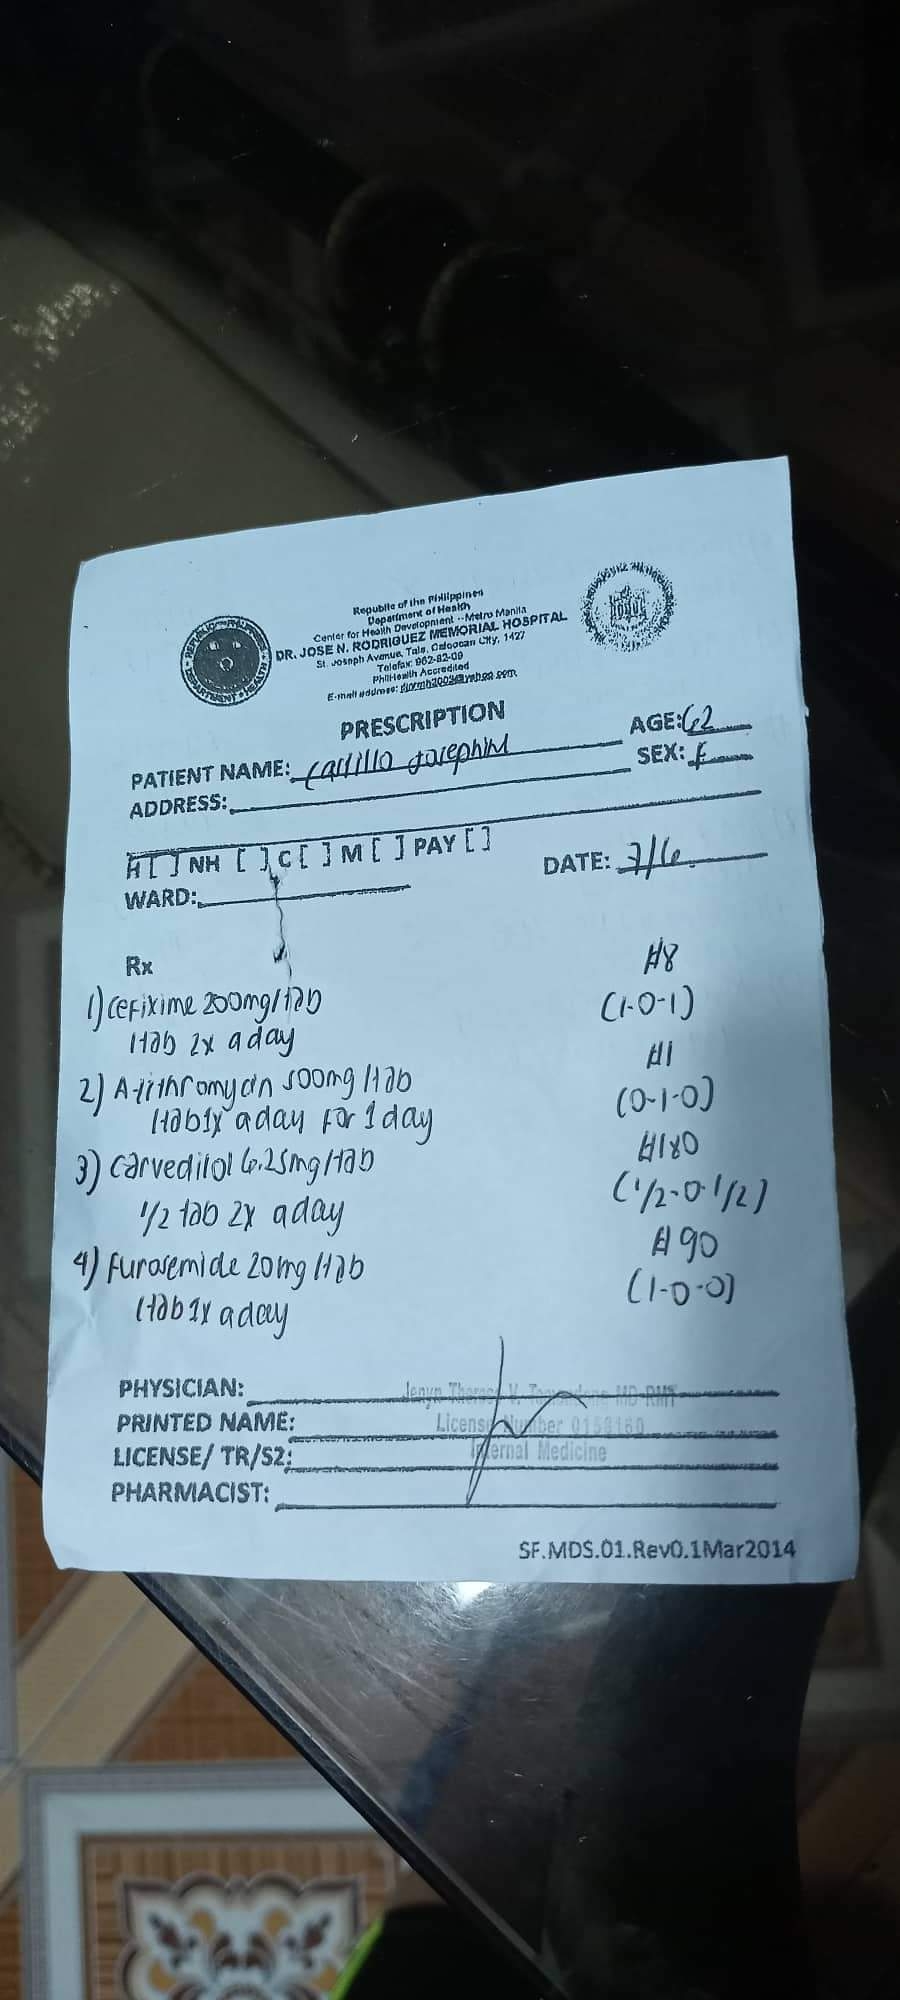 Republic of the Philippines
Department of Health
Center for Health Development - Metro Manila
DR. JOSE N. RODRIGUEZ MEMORIAL HOSPITAL
St. Joseph Avenue, Tala, Caloocan City, 1427
Telefax: 962-82-09
PhilHealth Accredited
E-mail address:
PRESCRIPTION
AGE: 62
PATIENT NAME: Josephine
SEX: F
ADDRESS:
H [ ] NH [ ] C [ ] M [ ] PAY [ ]
DATE: 7/6
WARD:
Rx
#8
1) Cefixime 200mg/tab
(1-0-1)
1 tab 2x a day
#1
2) Azithromycin 500mg/tab
(0-1-0)
1 tab 1x a day for 1 day
#180
3) Carvedilol 6.25mg/tab
(1/2-0-1/2)
1/2 tab 2x a day
#90
4) Furosemide 20mg/tab
(1-0-0)
1 tab 1x a day
PHYSICIAN: V. MD-RMT
PRINTED NAME: License Number 0158160
LICENSE/ TR/S2: Internal Medicine
PHARMACIST:
SF.MDS.01.Rev0.1Mar2014